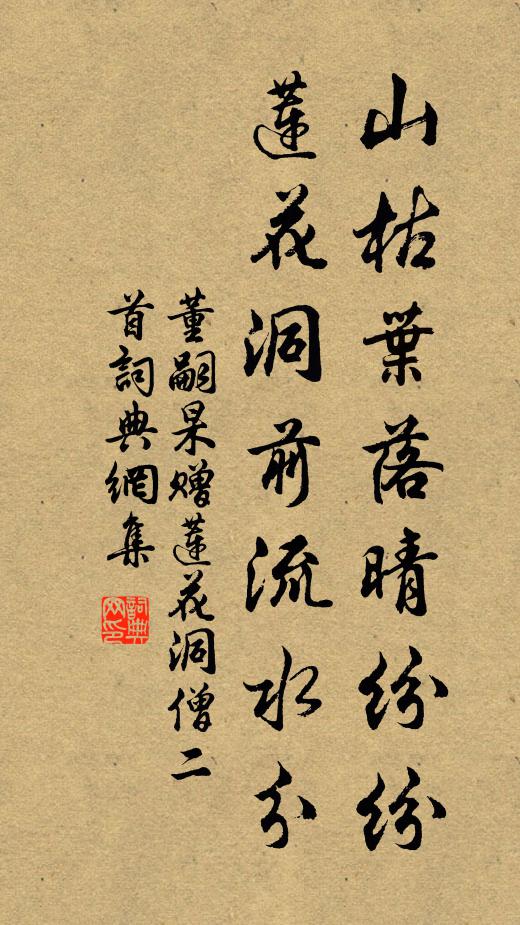 山枯葉落晴紛紛
蓮花洞前流水分
董嗣杲贈蓮花洞僧二
首詞典網集
詞典
网印